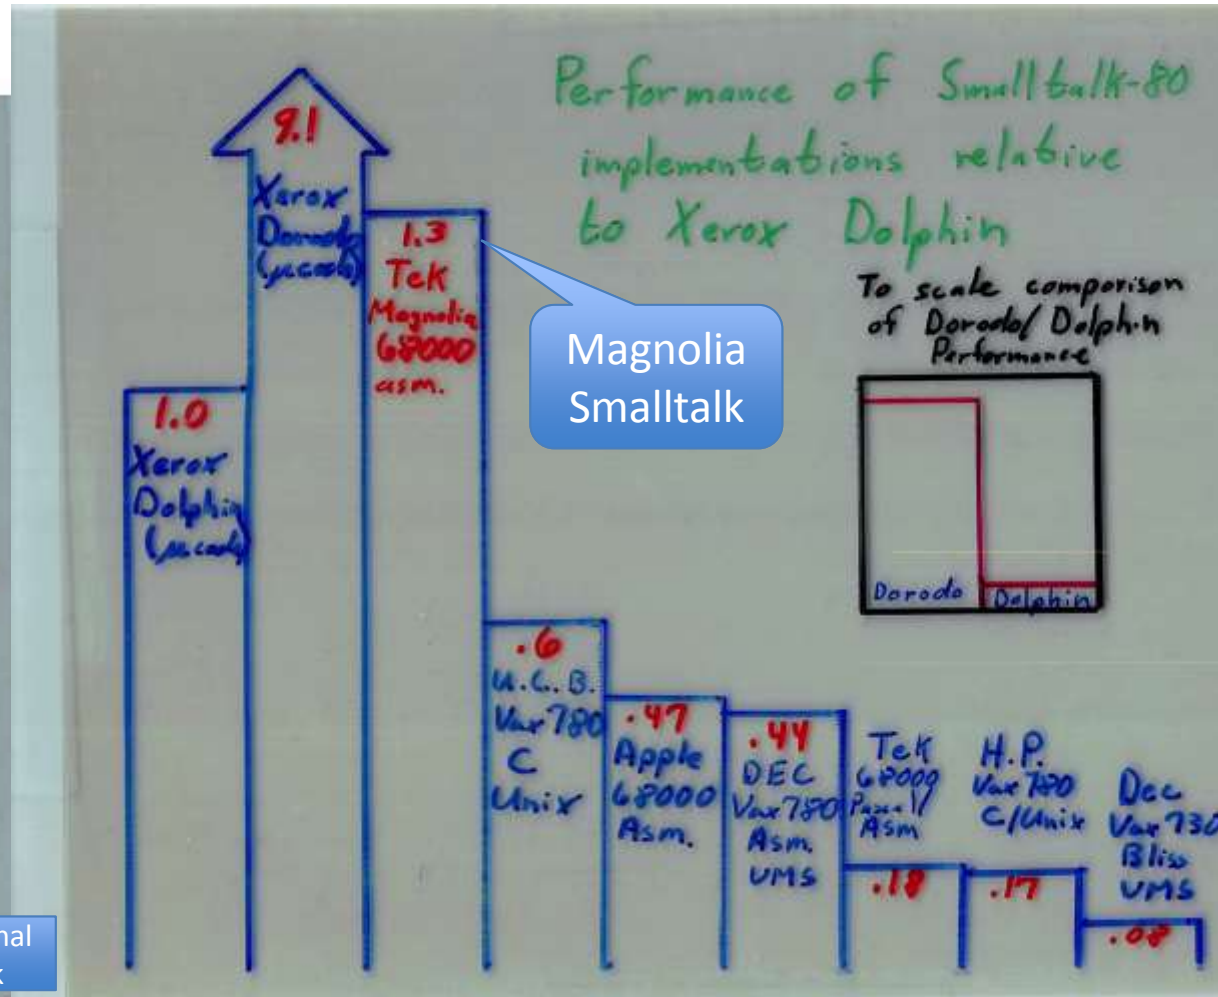 Performance of Smalltalk-80
implementations relative
to Xerox Dolphin
To scale comparison
of Dorodo/Dolphin
Performance
Dorodo
Dolphin
Magnolia
Smalltalk
1.0
Xerox
Dolphin
(μcode)
9.1
Xerox
Dorodo
(μcode)
1.3
Tek
Magnolia
68000
asm.
.6
U.C.B.
Vax 780
C
Unix
.47
Apple
68000
Asm.
.44
DEC
Vax 780
Asm.
VMS
Tek
68000
Pascal/
Asm
.18
H.P.
Vax 780
C/Unix
.17
Dec
Vax 730
Bliss
VMS
.08